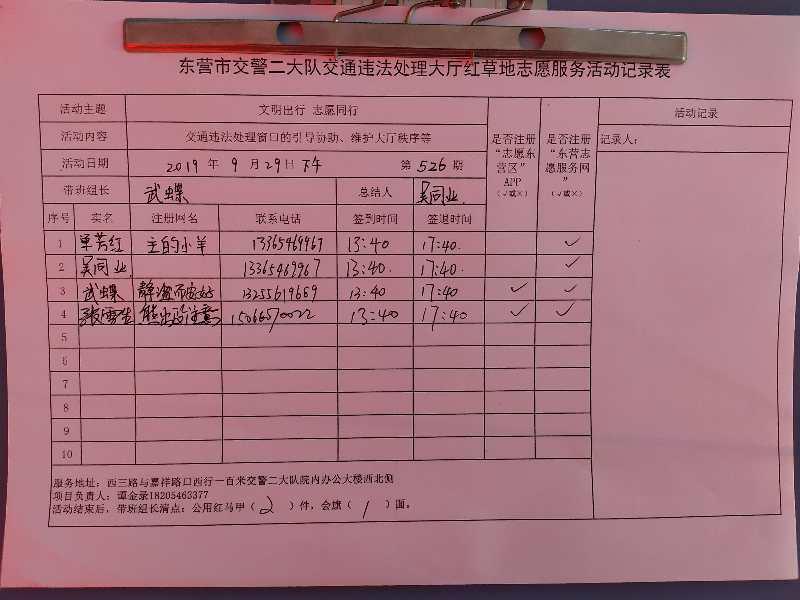 东营市交警二大队交通违法处理大厅红草地志愿服务活动记录表
活动主题 文明出行 志愿同行 是否注册“志愿东营区”APP(√或×) 是否注册“东营志愿服务网”(√或×) 活动记录
活动内容 交通违法处理窗口的引导协助、维护大厅秩序等 记录人:
活动日期 2019 年 9 月 29日 下午 第 526 期
带班组长 武蝶 总结人 吴同业
序号 实名 注册网名 联系电话 签到时间 签退时间
1 单芳红 主的小羊 13365469967 13:40 17:40. ✓
2 吴同业. 13365469967 13:40. 17:40. ✓
3 武蝶 13255619669 13:40 17:40 ✓ ✓
4 15066570022 13:40 17:40 ✓ ✓
5
6
7
8
9
10
服务地址:西三路与嘉祥路口西行一百米交警二大队院内办公大楼西北侧
项目负责人:谭金录18205463377
活动结束后,带班组长清点:公用红马甲( 2 )件,会旗( 1 )面。